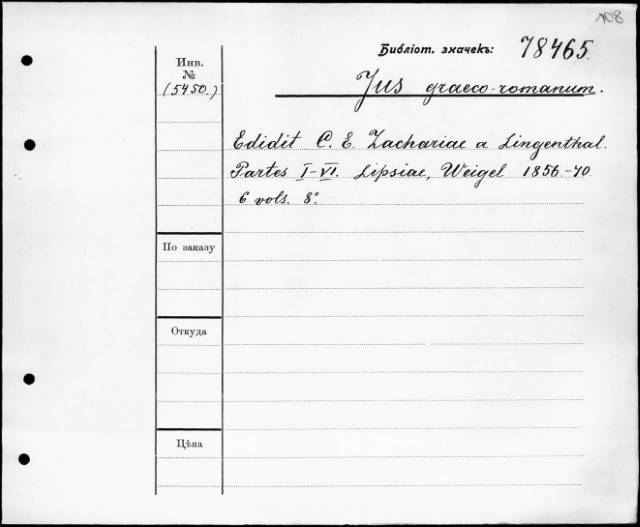 108
Библіот. значекъ: 78465.
Инв.
№
(5450.)
Jus graeco-romanum.
Edidit C. E. Zachariae a Lingenthal.
Partes I-VI. Lipsiae, Weigel 1856-70.
6 vols. 8°.
По заказу
Откуда
Цѣна